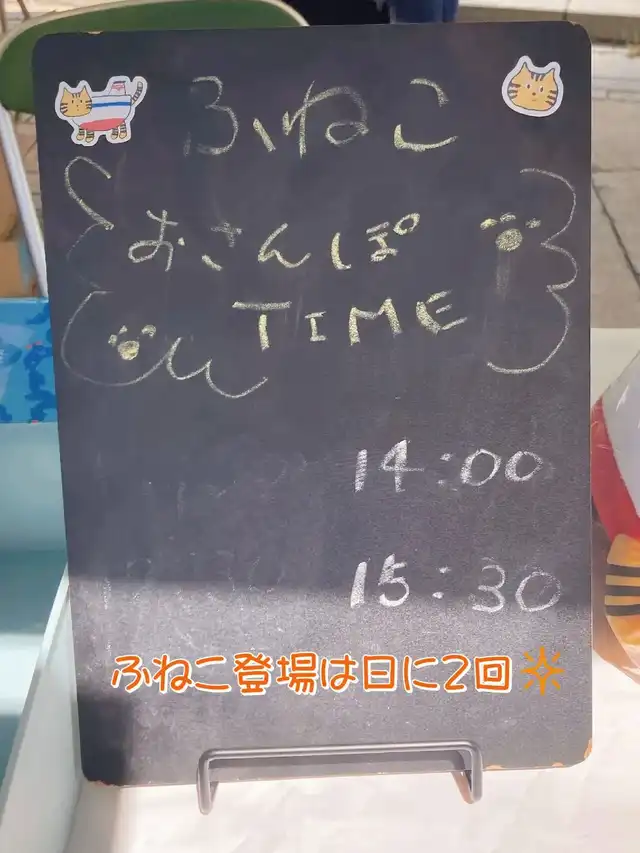 ふねこ
おさんぽ
TIME
14:00
15:30
ふねこ登場は日に2回